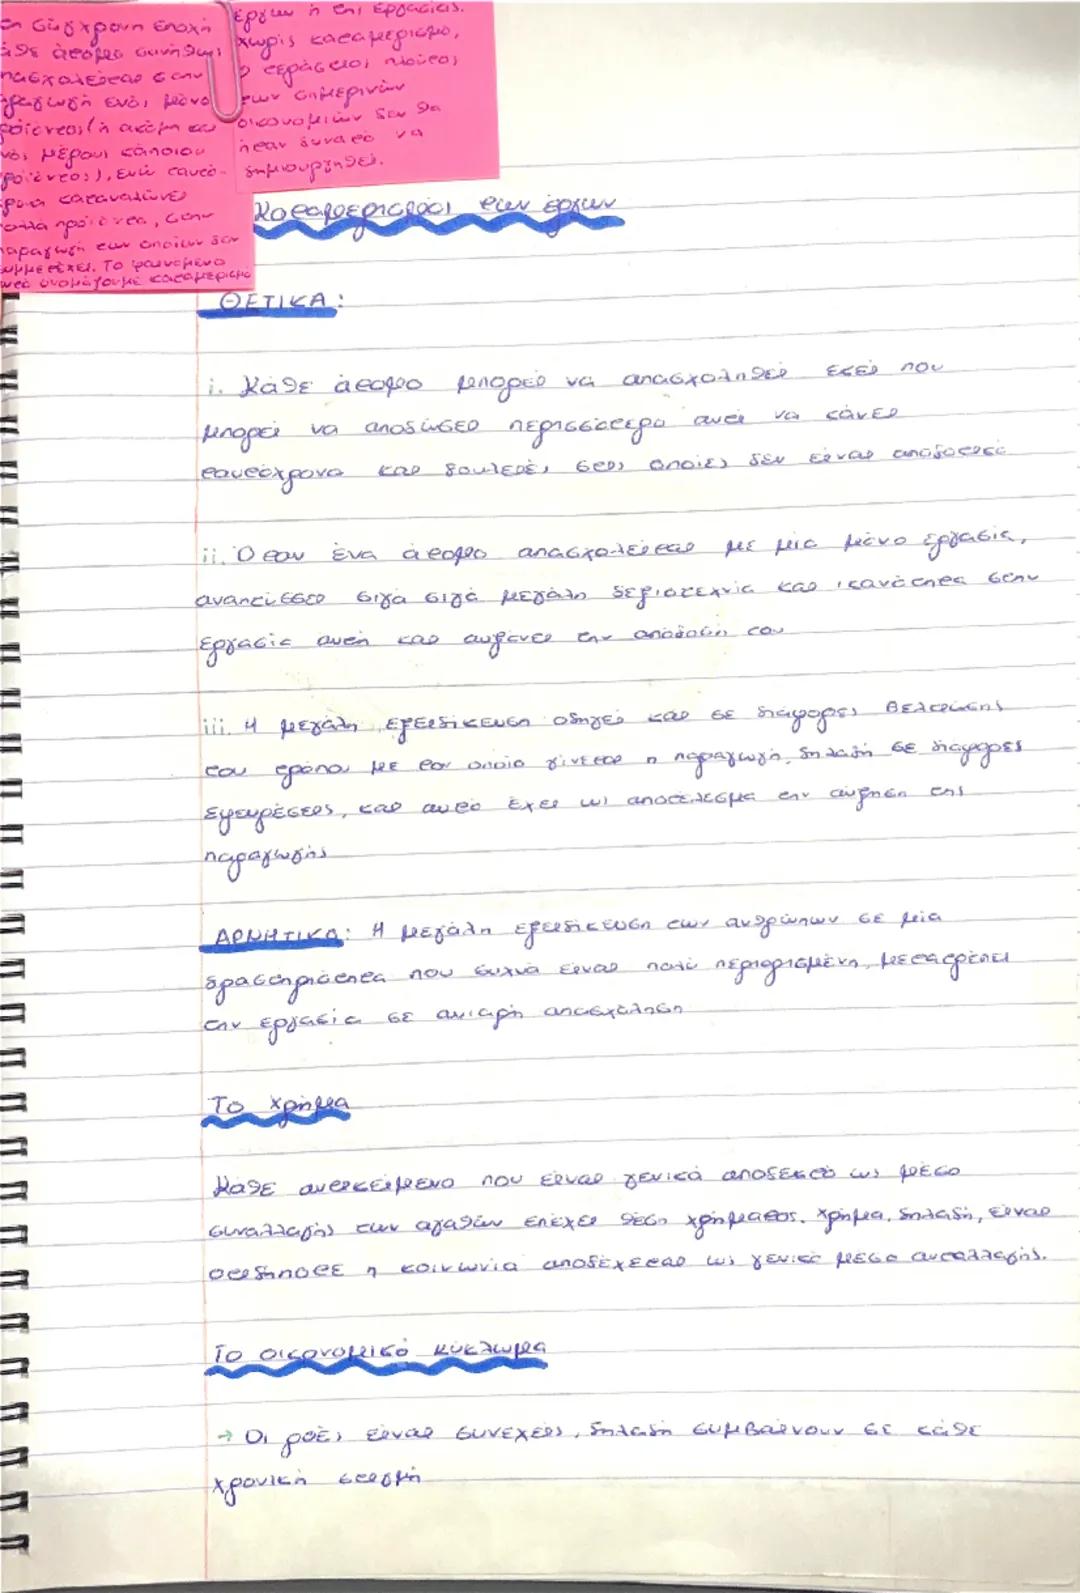 στη σύγχρονη εποχή
κάθε άτομο συνήθως
απασχολείται στην
παραγωγή ενός μόνο
προϊόντος (ή ακόμη και
ενός μέρους κάποιου
προϊόντος), ενώ ταυτό-
χρονα καταναλώνει
πολλά προϊόντα, στην
παραγωγή των οποίων δεν
συμμετέχει. Το φαινόμενο
αυτό ονομάζουμε καταμερισμό
έργων ή της εργασίας.
Χωρίς καταμερισμό,
ο τεράστιος πλούτος
των σημερινών
οικονομιών δεν θα
ήταν δυνατό να
δημιουργηθεί.
Καταμερισμός των έργων
ΘΕΤΙΚΑ:
i. Κάθε άτομο μπορεί να απασχοληθεί εκεί που
μπορεί να αποδώσει περισσότερο αντί να κάνει
ταυτόχρονα και δουλειές στις οποίες δεν είναι αποδοτικό
ii. Όταν ένα άτομο απασχολείται με μια μόνο εργασία,
αναπτύσσει σιγά σιγά μεγάλη δεξιοτεχνία και ικανότητα στην
εργασία αυτή και αυξάνει την απόδοση του
iii. Η μεγάλη εξειδίκευση οδηγεί και σε διάφορες βελτιώσεις
του τρόπου με τον οποίο γίνεται η παραγωγή, δηλαδή σε διάφορες
εφευρέσεις, και αυτό έχει ως αποτέλεσμα την αύξηση της
παραγωγής
ΑΡΝΗΤΙΚΑ: Η μεγάλη εξειδίκευση των ανθρώπων σε μία
δραστηριότητα που συχνά είναι πολύ περιορισμένη, μετατρέπει
την εργασία σε ανιαρή απασχόληση
Το χρήμα
Κάθε αντικείμενο που είναι γενικά αποδεκτό ως μέσο
συναλλαγής των αγαθών επέχει θέση χρήματος. Χρήμα, δηλαδή, είναι
οτιδήποτε η κοινωνία αποδέχεται ως γενικό μέσο ανταλλαγής.
Το οικονομικό κύκλωμα
→ Οι ροές είναι συνεχείς, δηλαδή συμβαίνουν σε κάθε
χρονική στιγμή